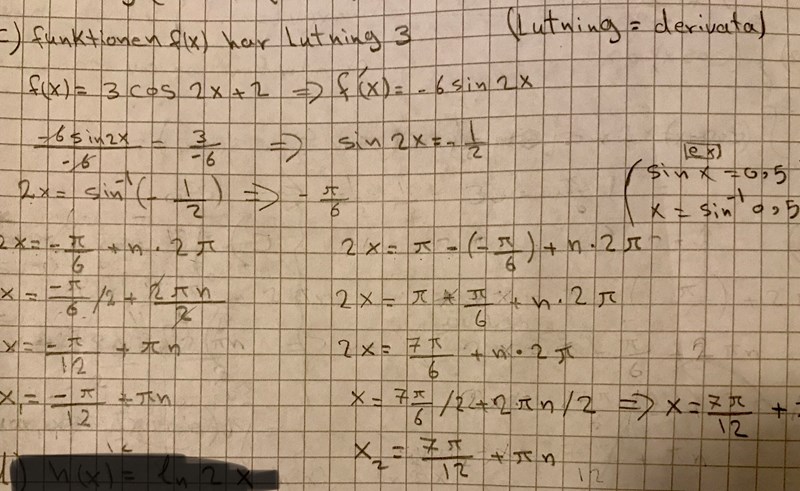 c) funktionen f(x) har Lutning 3 (Lutning = derivata)
f(x) = 3 cos 2x + 2 => f'(x) = -6 sin 2x
-6 sin 2x / -6 = 3 / -6 => sin 2x = - 1/2
[ex]
sin x = 0,5
x = sin⁻¹ 0,5
2x = sin⁻¹(- 1/2) => - π/6
2x = - π/6 + n · 2π 2x = π - (- π/6) + n · 2π
x = -π/6 /2 + 2πn/2 2x = π + π/6 + n · 2π
x = -π/12 + πn 2x = 7π/6 + n · 2π
x₁ = -π/12 + πn x = 7π/6 /2 + 2πn/2 => x = 7π/12 +
x₂ = 7π/12 + πn
h(x) = ln 2x